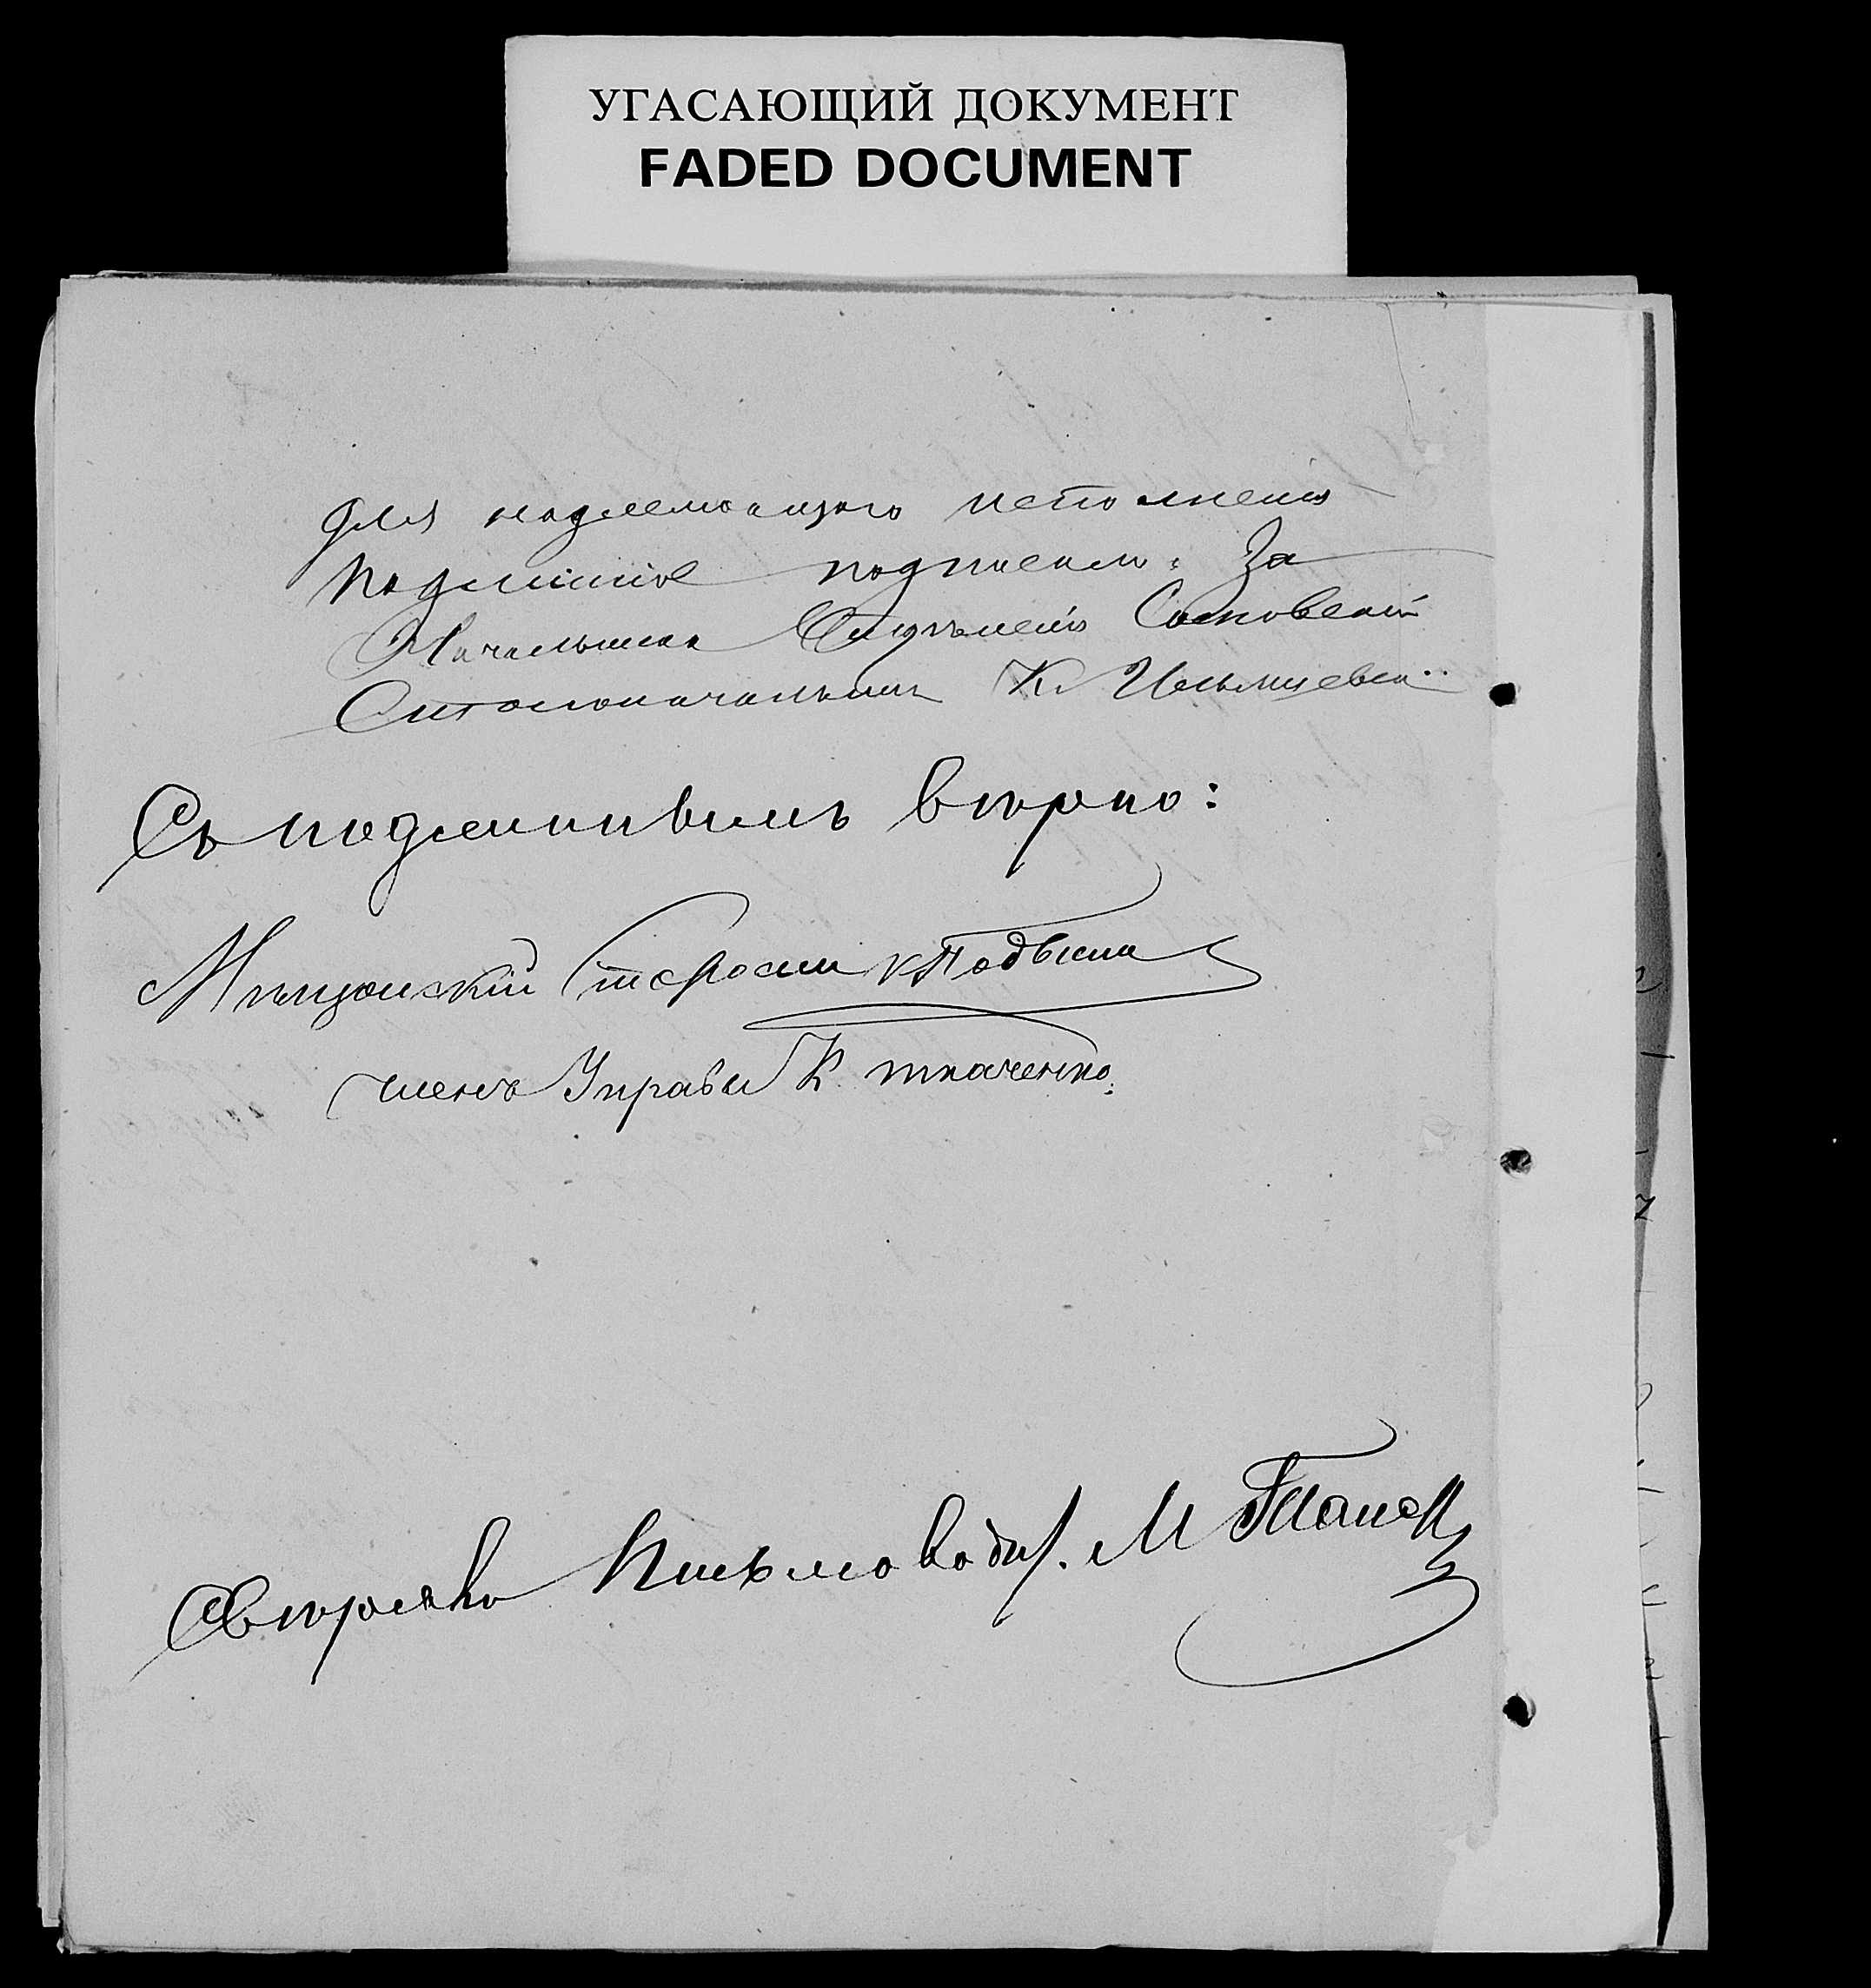 УГАСАЮЩИЙ ДОКУМЕНТ
FADED DOCUMENT
для надлежащаго исполненія
Подлинное подписалъ: За
Начальника Отдѣленія Сосновскій
Столоначальникъ К.
Съ подлиннымъ вѣрно:
Мѣщанскій Староста
членъ Управы К ткаченко.
Свѣрялъ Письмоводит. М